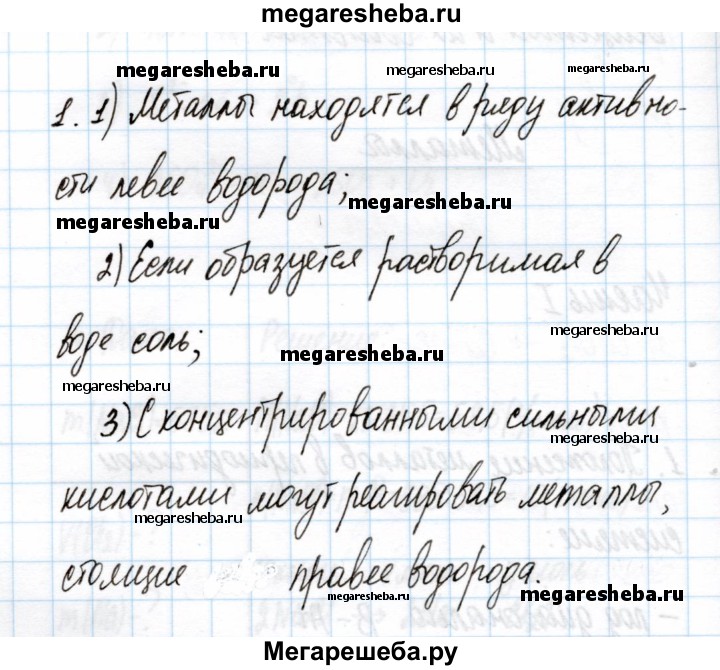 megaresheba.ru
megaresheba.ru megaresheba.ru megaresheba.ru
1. 1) Металлы находятся в ряду активно-
сти левее водорода;
megaresheba.ru megaresheba.ru
2) Если образуется растворимая в
воде соль;
megaresheba.ru
megaresheba.ru
3) С концентрированными сильными
megaresheba.ru
кислотами могут реагировать металлы,
megaresheba.ru
стоящие правее водорода.
megaresheba.ru megaresheba.ru
Мегарешеба.ру